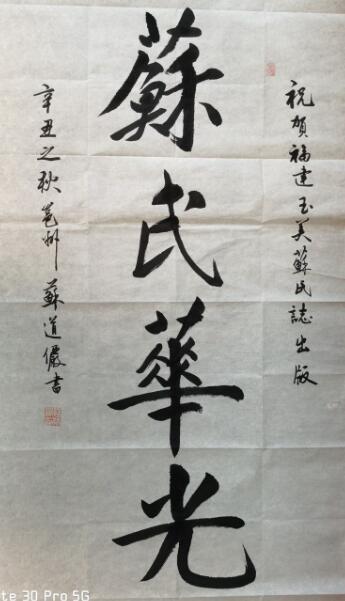 祝贺福建玉美蘇氏誌出版
蘇氏華光
辛丑之秋邕州蘇道儼書
te 30 Pro 5G